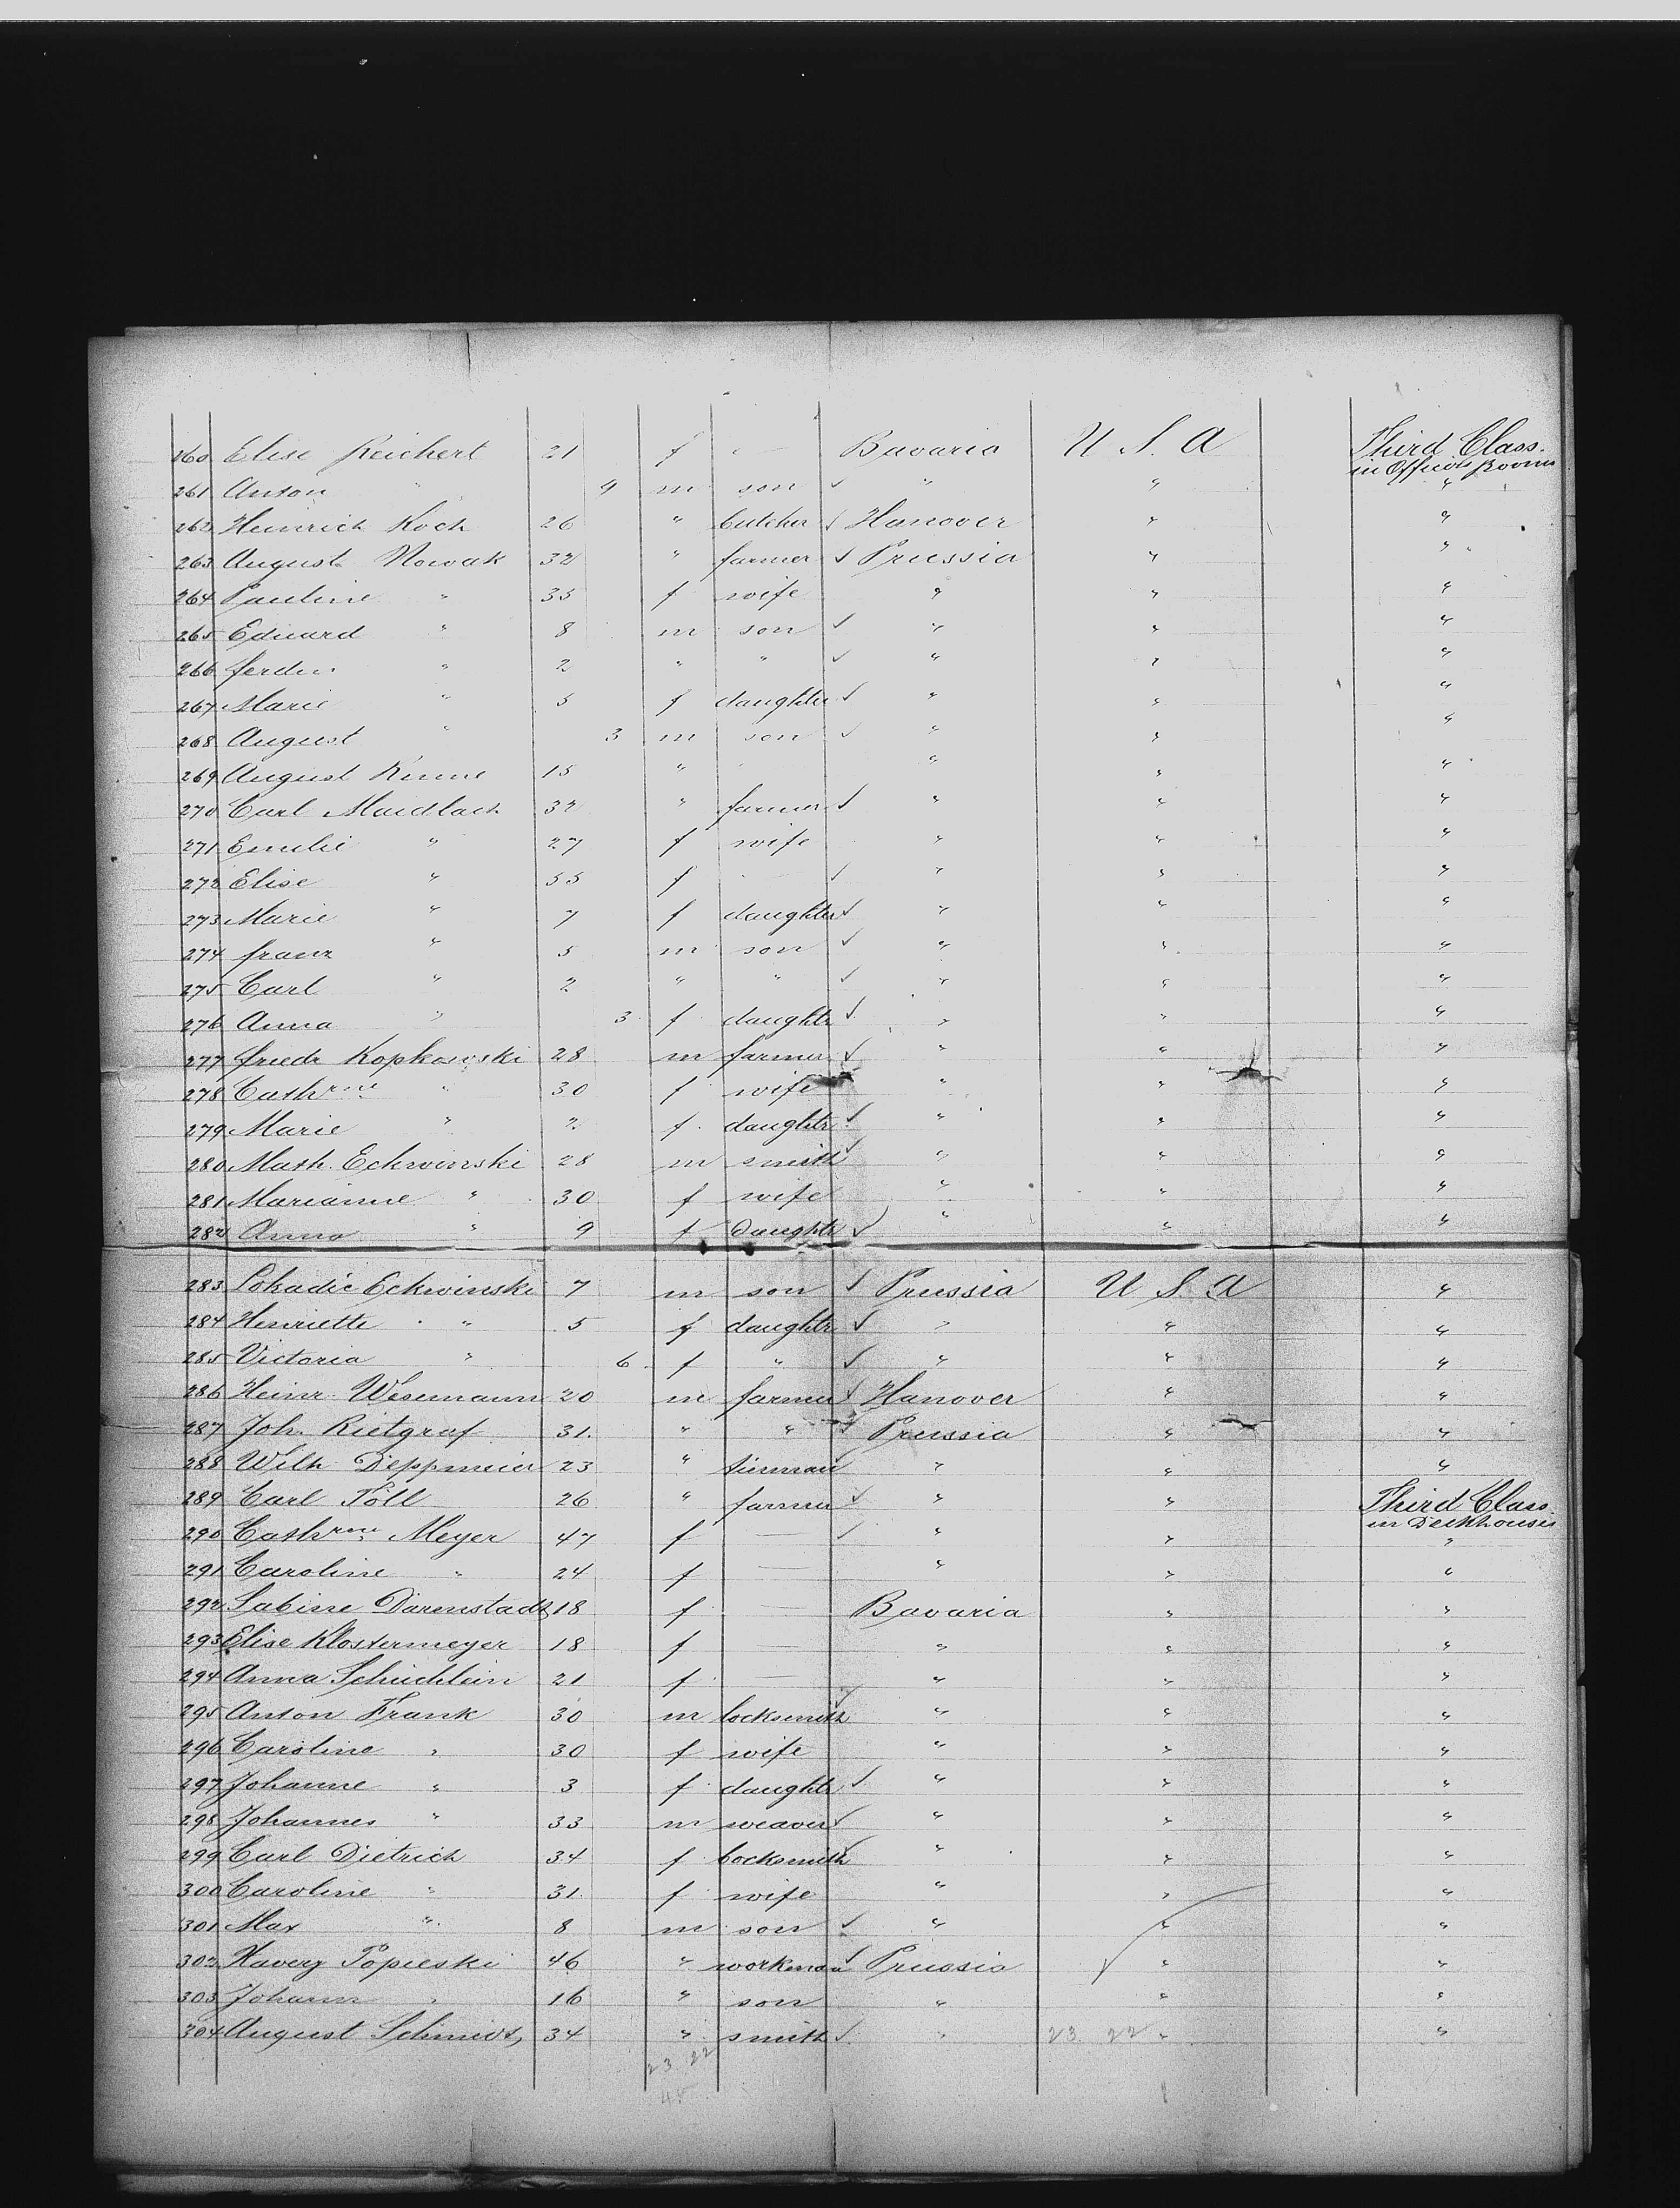 260 Elise Reichert 21 f — Bavaria U. S. A Third Class.
in Officers Rooms
261 Anton " 9 m son ✓ " " "
262 Heinrich Koch 26 " butcher ✓ Hanover " "
263 August Nowak 32 " farmer ✓ Prussia " "
264 Pauline " 35 f wife " " "
265 Eduard " 8 m son ✓ " " "
266 ferdin " 2 " " ✓ " " "
267 Marie " 5 f daughter ✓ " " "
268 August " 3 m son ✓ " " "
269 August 15 " " " "
270 Carl Maidlach 32 " farmer ✓ " " "
271 Emilie " 27 f wife " " "
272 Elise " 55 f — ✓ " " "
273 Marie " 7 f daughter ✓ " " "
274 franz " 5 m son ✓ " " "
275 Carl " 2 " " ✓ " " "
276 Anna " 3 f daughtr ✓ " " "
277 friedr Kopkowski 28 m farmer ✓ " " "
278 Cathrine " 30 f wife " " "
279 Marie " 2 f daughtr ✓ " " "
280 Math. Eckwinski 28 m smith ✓ " " "
281 Marianne " 30 f wife " " "
282 Anna " 9 f daughtr ✓ " " "
283 Lokadie Eckwinski 7 m son ✓ Prussia U S. A "
284 Henriette " 5 f daughtr ✓ " " "
285 Victoria " 6 f " ✓ " " "
286 Heinr. Wesemann 20 m farmer ✓ Hanover " "
287 Joh. Rietgraf 31. " " ✓ Prussia " "
288 Wilh Deppmeier 23 " " " "
289 Carl Töll 26 " farmer ✓ " " Third Class
in Deckhouses
290 Cathrine Meyer 47 f — ✓ " " "
291 Caroline " 24 f — " " "
292 Sabine Darenstadt 18 f — Bavaria " "
293 Elise Klostermeyer 18 f — " " "
294 Anna Schüchlein 21 f — " " "
295 Anton Frank 30 m locksmith ✓ " " "
296 Caroline " 30 f wife " " "
297 Johanne " 3 f daughtr ✓ " " "
298 Johannes " 33 m weaver ✓ " " "
299 Carl Dietrich 34 f locksmith ✓ " " "
300 Caroline " 31. f wife " " "
301 Max " 8 m son ✓ " " "
302 Xavery Popieski 46 " workman ✓ Prussia " "
303 Johann " 16 " son " " "
304 August Schmidt, 34 " smith ✓ " 23. 22 " "
23 22
45